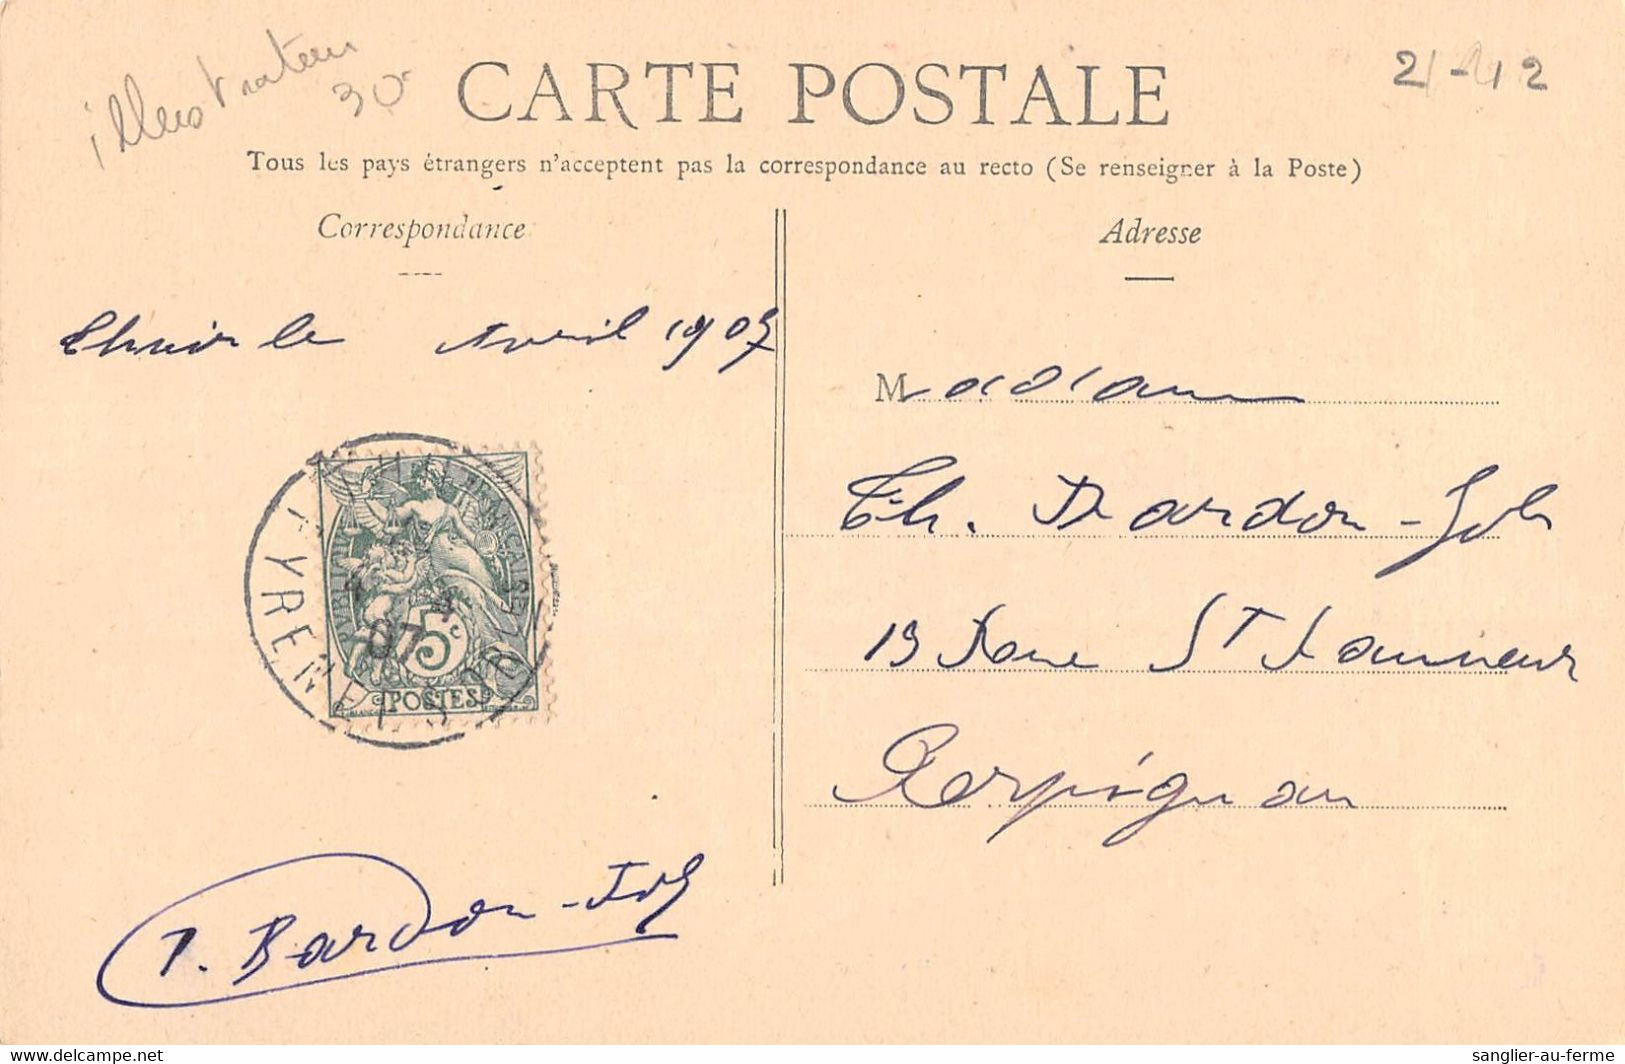 illustrateur
30
CARTE POSTALE
21-12
Tous les pays étrangers n'acceptent pas la correspondance au recto (Se renseigner à la Poste)
Correspondance
Adresse
Thuir le Avril 1907
Madame
Th. Bardon-Job
13 Rue St Sauveur
Perpignan
PYRENEES
07
5c
POSTES
P. Bardon-Job
www.delcampe.net
sanglier-au-ferme